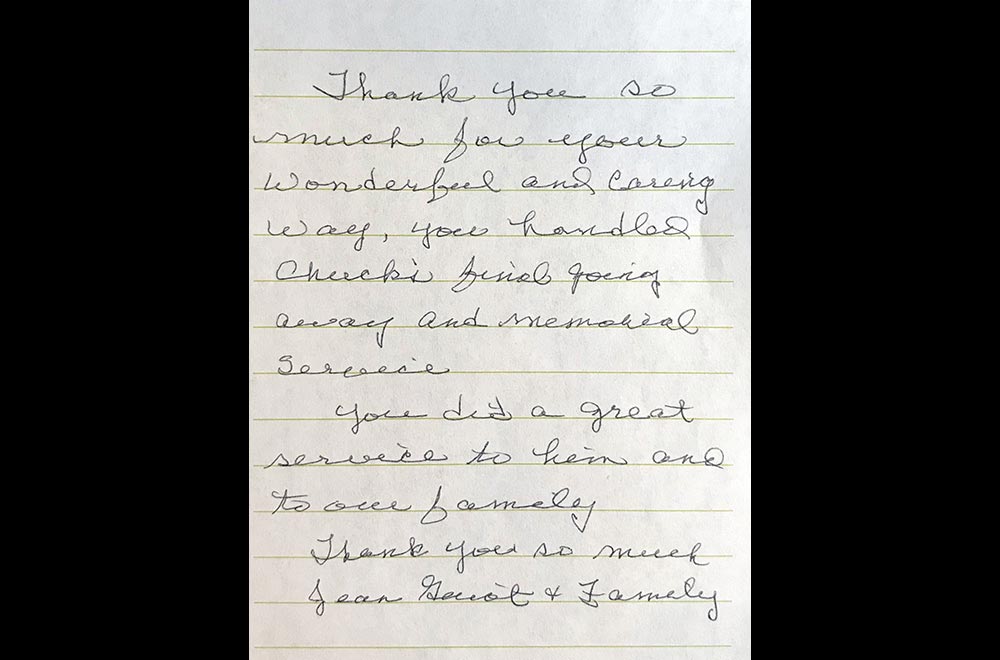 Thank you so
much for your
wonderful and caring
way, you handled
Chuck's final going
away and memorial
Service
You did a great
service to him and
to our family
Thank you so much
Jean & Family